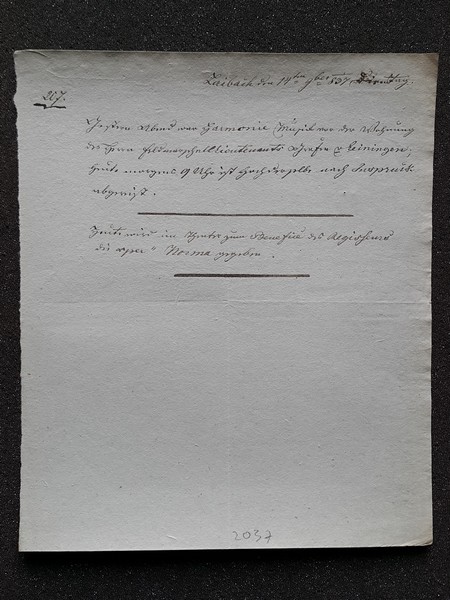 Laibach den 14ten 9ber 837. Dienstag.
207.
Gestern Abend war Harmonie Musik vor der Wohnung
des Herrn Feldmarschallieutenants Grafen v Leiningen;
heute morgens 9 Uhr ist Hochderselbe nach Inspruck
abgereist.
Heute wird im Theater zum Benefice des Regisseurs
die Oper " Norma gegeben.
2037